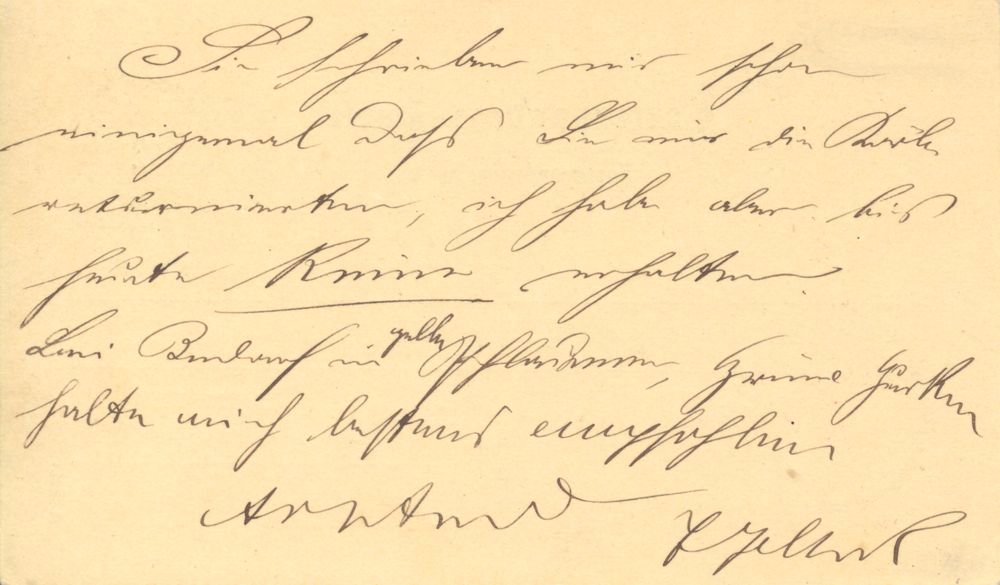 Sie schrieben mir schon
einigemal dass Sie mir die Körbe
retournierten, ich habe aber bis
heute Keine erhalten.
Bei Bedarf in gelben Pflaumen, grüne Gurken
halte mich bestens empfohlen
Achtend